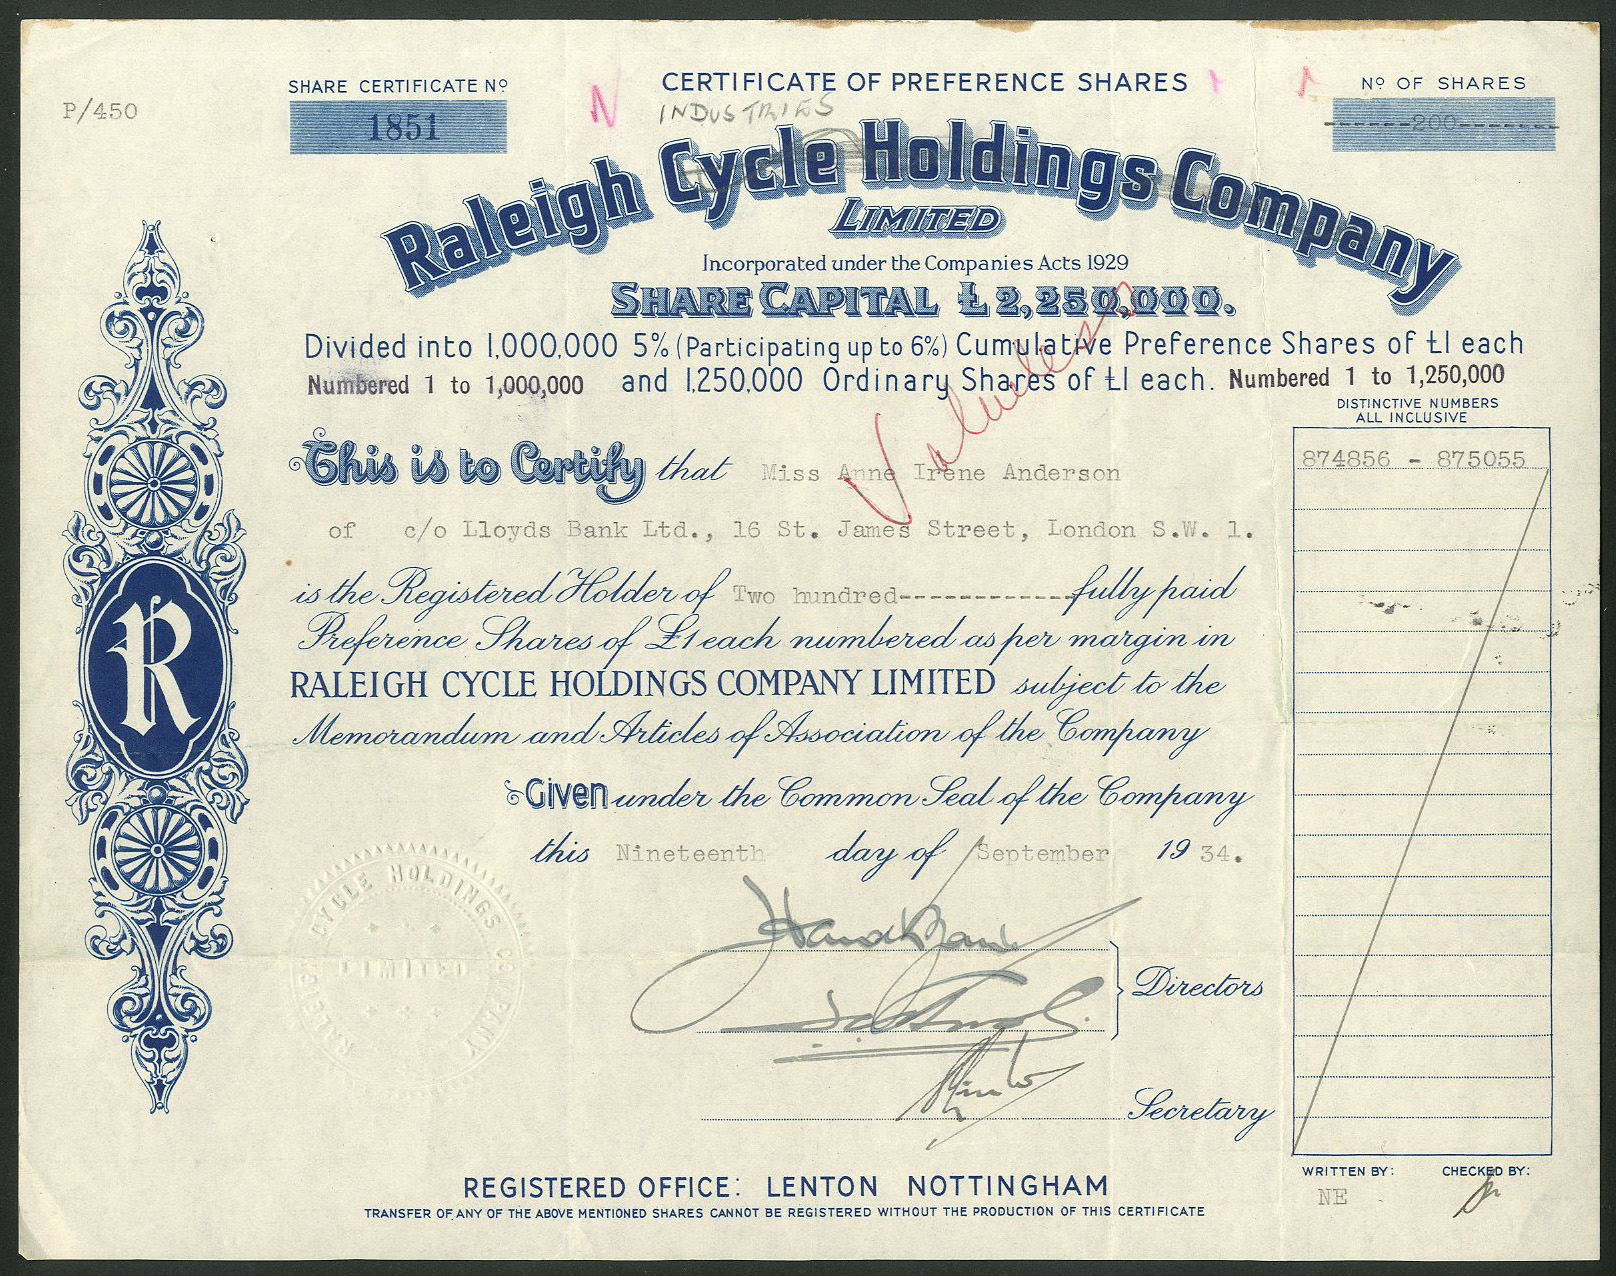 P/450
SHARE CERTIFICATE Nº
1851
CERTIFICATE OF PREFERENCE SHARES
INDUSTRIES
Nº OF SHARES
------200------
Raleigh Cycle Holdings Company
LIMITED
Incorporated under the Companies Acts 1929
SHARE CAPITAL £2,250,000.
Divided into 1,000,000 5% (Participating up to 6%) Cumulative Preference Shares of £1 each
Numbered 1 to 1,000,000 and 1,250,000 Ordinary Shares of £1 each. Numbered 1 to 1,250,000
Valueless
DISTINCTIVE NUMBERS
ALL INCLUSIVE
874856 - 875055
This is to Certify that Miss Anne Irene Anderson
of c/o Lloyds Bank Ltd., 16 St. James Street, London S.W. 1.
is the Registered Holder of Two hundred------------fully paid
Preference Shares of £1 each numbered as per margin in
RALEIGH CYCLE HOLDINGS COMPANY LIMITED subject to the
Memorandum and Articles of Association of the Company
Given under the Common Seal of the Company
this Nineteenth day of September 1934.
RALEIGH CYCLE HOLDINGS COMPANY
LIMITED
Directors
Secretary
R
REGISTERED OFFICE: LENTON NOTTINGHAM
TRANSFER OF ANY OF THE ABOVE MENTIONED SHARES CANNOT BE REGISTERED WITHOUT THE PRODUCTION OF THIS CERTIFICATE
WRITTEN BY: CHECKED BY:
NE